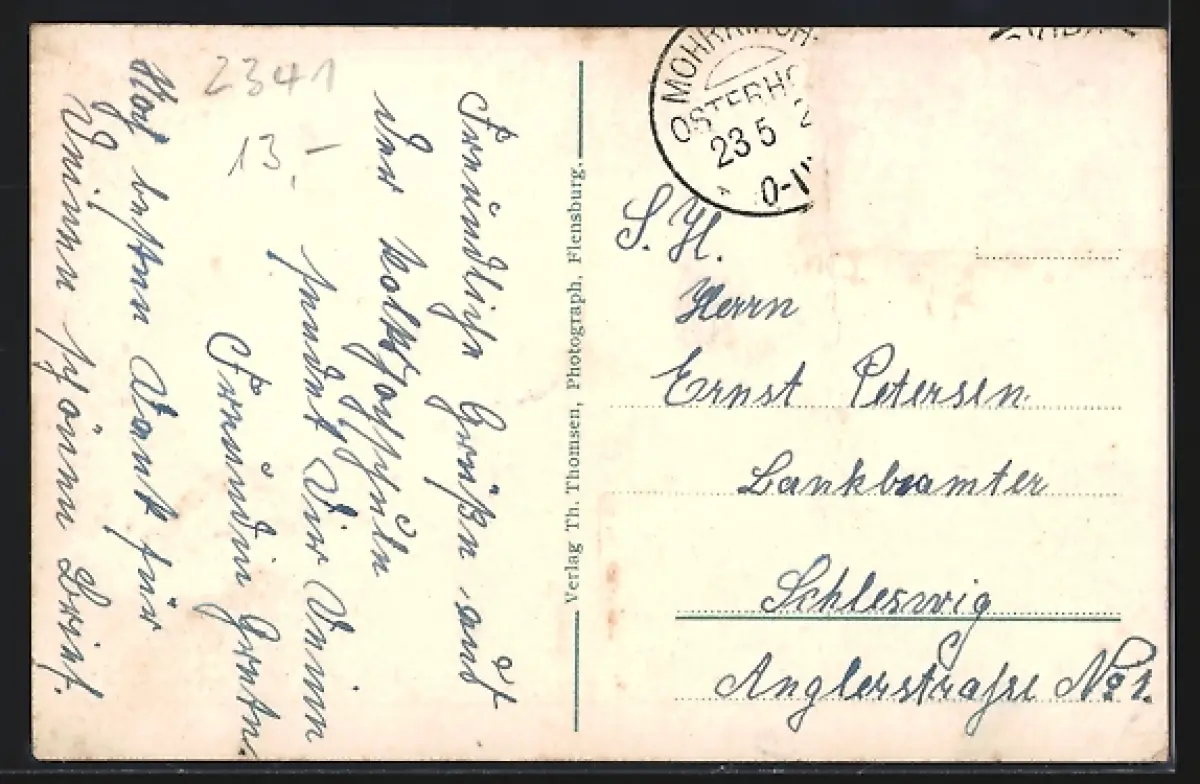 2341
13,-
Freundliche Grüße aus
der Volkshochschule
sendet Dir Deine
Freundin Greten.
Hab besten Dank für
Deinen schönen Brief.
Verlag Th. Thomsen, Photograph, Flensburg.
MOHRKIRCH-
OSTERHO
23 5 2
S. H.
Herrn
Ernst Petersen
Bankbeamter
Schleswig
Anglerstraße No 1.